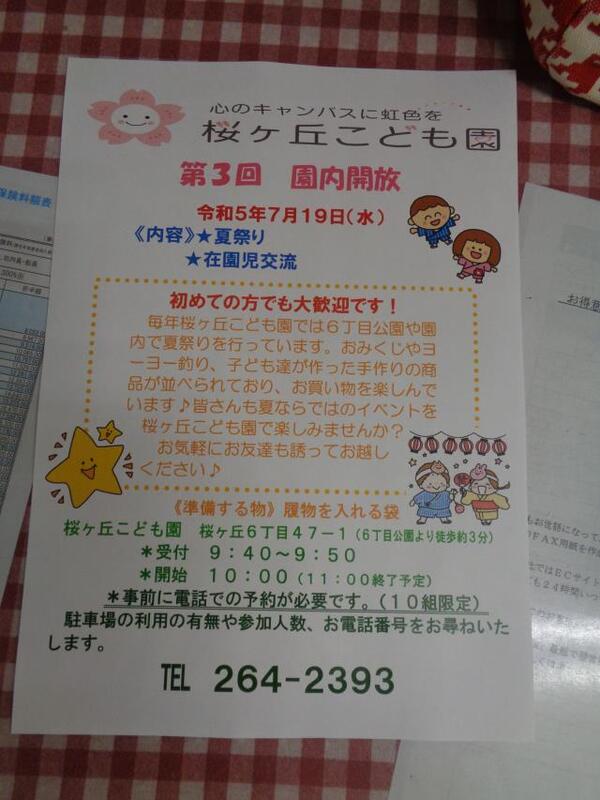 心のキャンバスに虹色を
桜ヶ丘こども園
第3回 園内開放
令和5年7月19日(水)
《内容》★夏祭り
★在園児交流
初めての方でも大歓迎です！
毎年桜ヶ丘こども園では6丁目公園や園
内で夏祭りを行っています。おみくじやヨ
ーヨー釣り、子ども達が作った手作りの商
品が並べられており、お買い物を楽しんで
います♪皆さんも夏ならではのイベントを
桜ヶ丘こども園で楽しみませんか？
お気軽にお友達も誘ってお越し
ください♪
《準備する物》履物を入れる袋
桜ヶ丘こども園 桜ヶ丘6丁目47－1(6丁目公園より徒歩約3分)
＊受付 9：40～9：50
＊開始 10：00(11：00終了予定)
＊事前に電話での予約が必要です。(10組限定)
駐車場の利用の有無や参加人数、お電話番号をお尋ねいた
します。
TEL 264-2393
保険料額表
お得意
もお世話になって
FAX用紙を作
ではECサイト
も24時間いつ